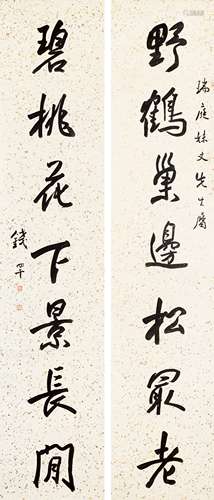 瑞庭丈先生屬
野鶴巢邊松冣老
碧桃花下景長閒
錢罕